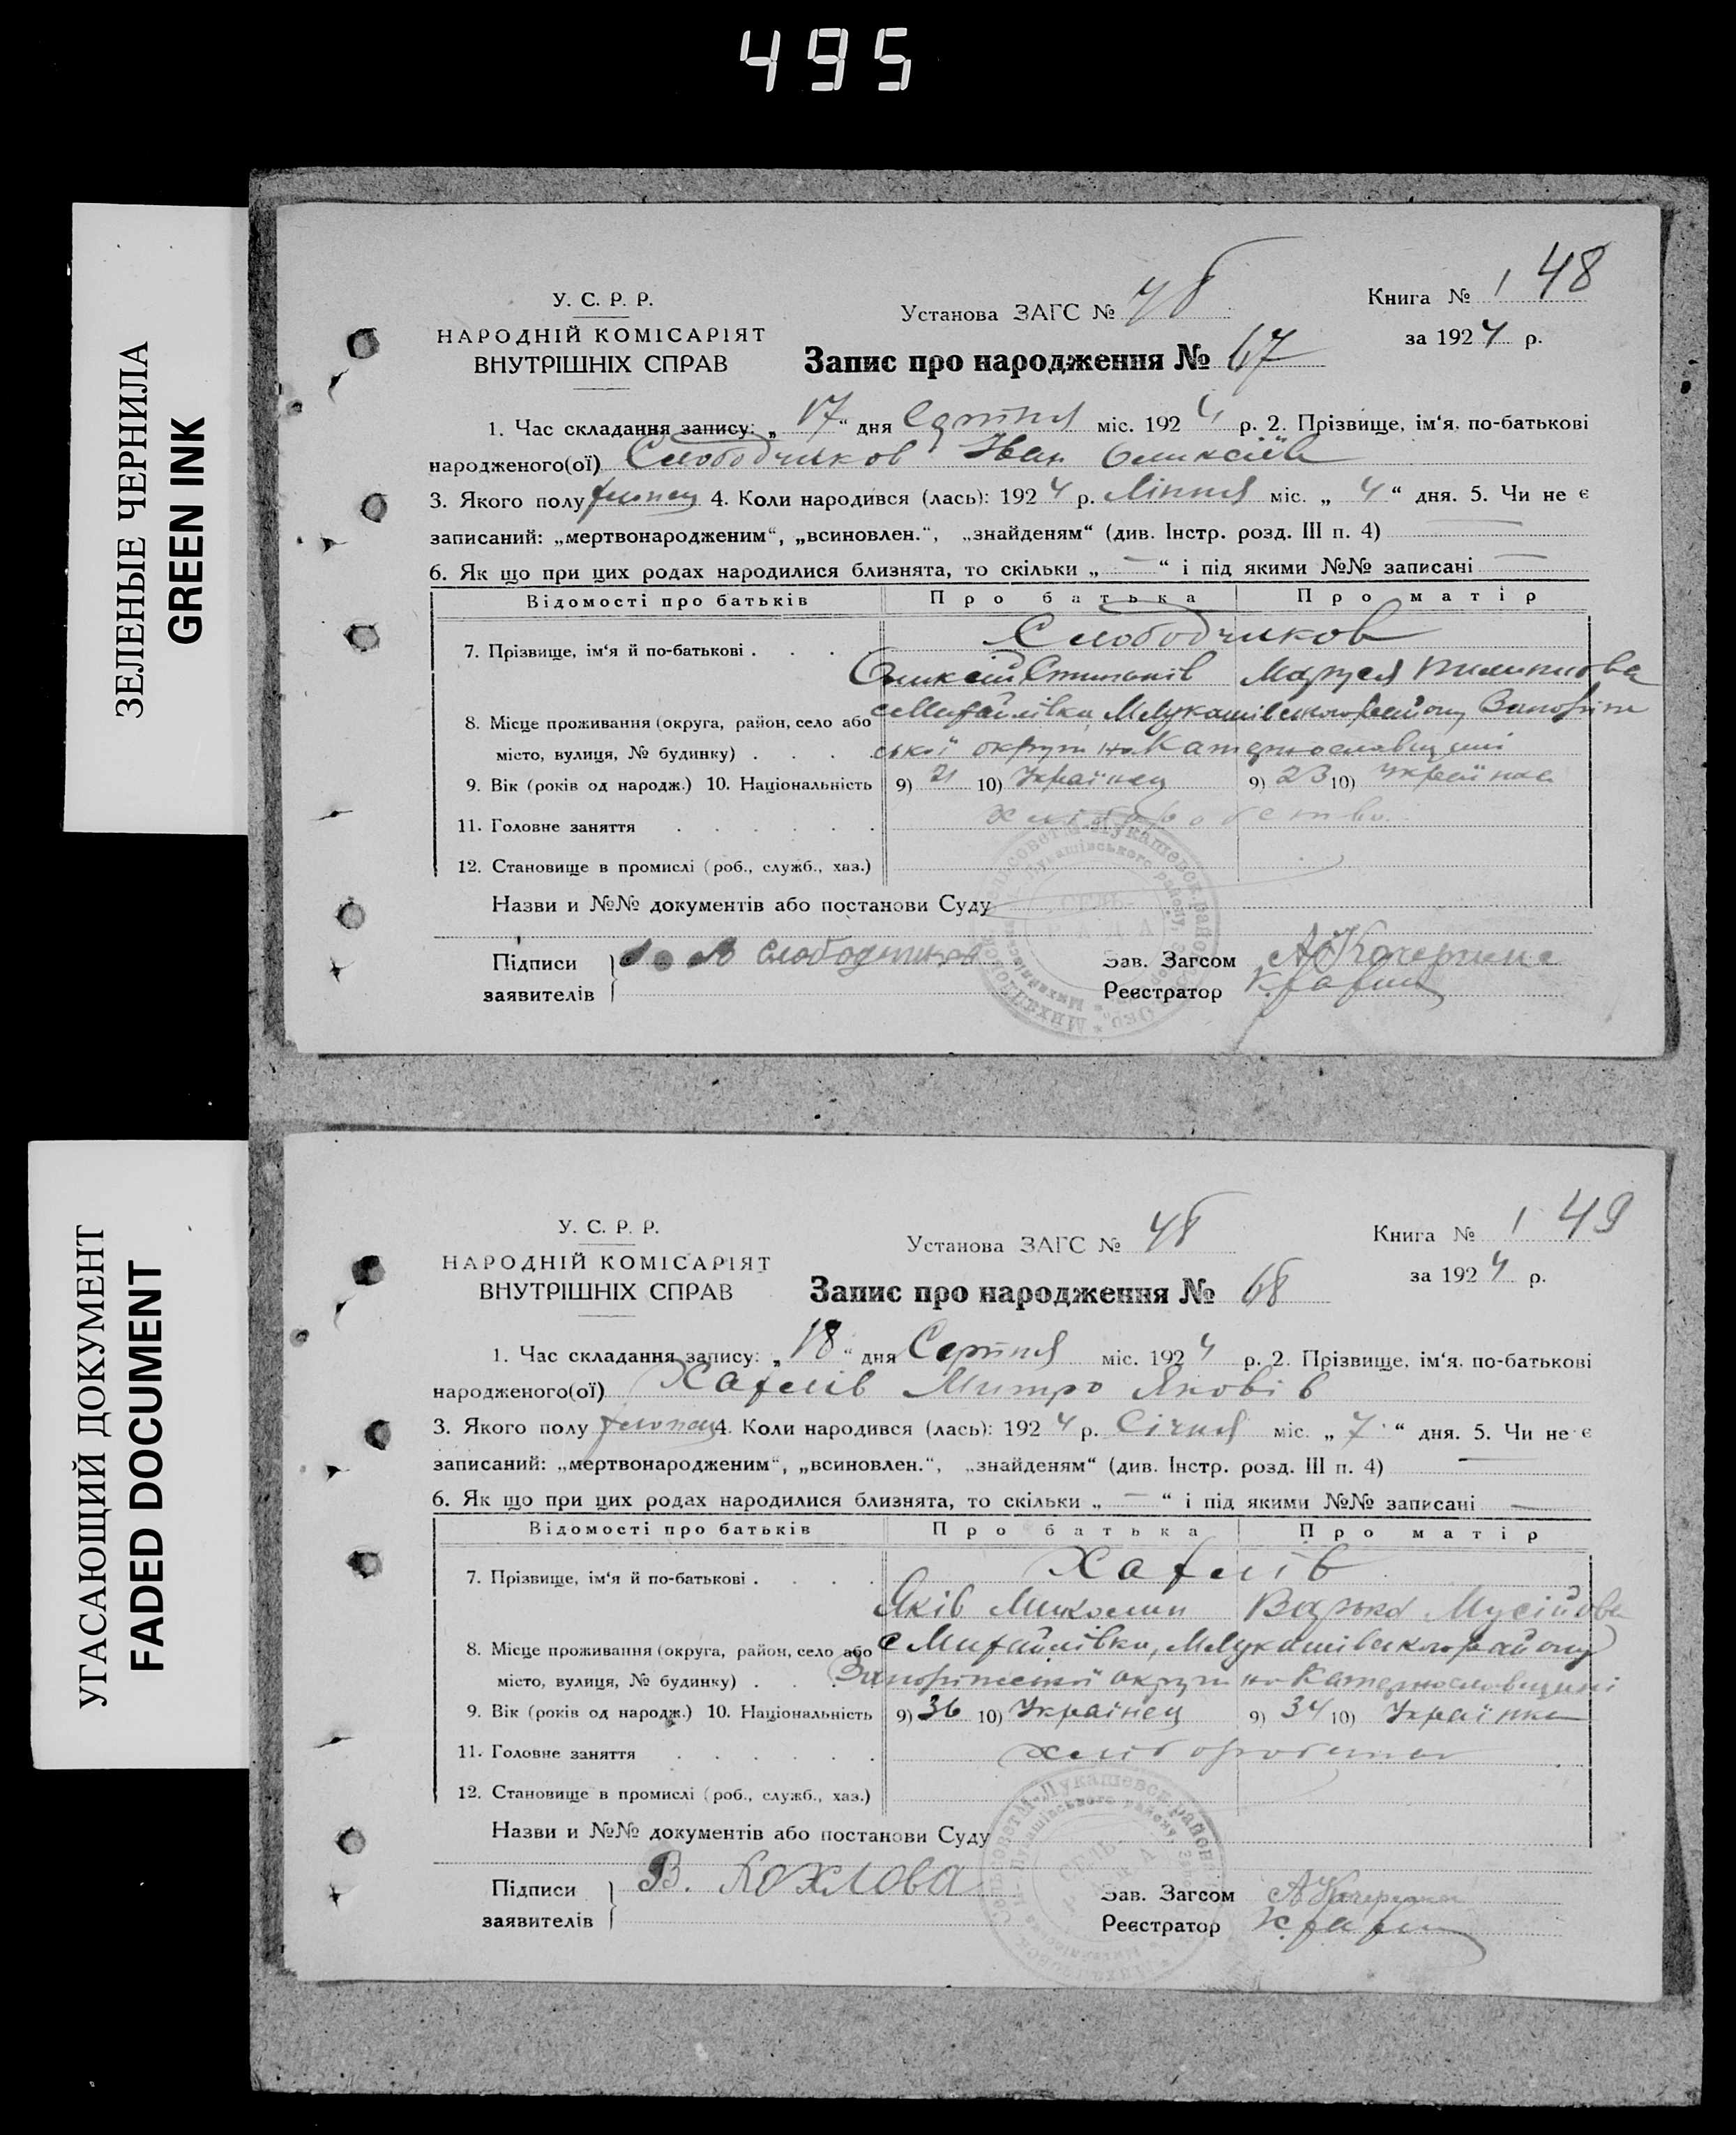 495
ЗЕЛЕНЫЕ ЧЕРНИЛА
GREEN INK
У. С. Р. Р.
НАРОДНІЙ КОМІСАРІЯТ
ВНУТРІШНІХ СПРАВ
Установа ЗАГС № 48
Запис про народження № 67
Книга № 1 48
за 1924 р.
1. Час складання запису: „ 17 “ дня Серпня міс. 1924 р. 2. Прізвище, ім‘я, по-батькові
народженого(ої) Слободчиков Іван Оликсіїв
3. Якого полу хлопец 4. Коли народився (лась): 1924 р. Ліпня міс. „ 4 “ дня. 5. Чи не є
записаний: „мертвонародженим“, „всиновлен.“, „знайденям“ (див. Інстр. розд. III п. 4) —
6. Як що при цих родах народилися близнята, то скільки „ — “ і під якими №№ записані —
Відомості про батьків Про батька Про матір
7. Прізвище, ім‘я й по-батькові . . . . Слободчиков
Оликсій Маруся
8. Місце проживання (округа, район, село або с Михайлівка, М Лукашівського району Запоріж
місто, вулиця, № будинку) . . . . ської округи на Катеринославщині
9. Вік (років од народж.) 10. Національність 9) 21 10) Українец 9) 23 10) Українка
11. Головне заняття . . . . . . хліборобство
12. Становище в промислі (роб., служб., хаз.)
Назви и №№ документів або постанови Суду
СЕЛЬ-
РАДА
Підписи
заявителів
Зав. Загсом
Реєстратор
УГАСАЮЩИЙ ДОКУМЕНТ
FADED DOCUMENT
У. С. Р. Р.
НАРОДНІЙ КОМІСАРІЯТ
ВНУТРІШНІХ СПРАВ
Установа ЗАГС № 48
Запис про народження № 68
Книга № 1 49
за 1924 р.
1. Час складання запису: „ 18 “ дня Серпня міс. 1924 р. 2. Прізвище, ім‘я, по-батькові
народженого(ої) Хахлів Митро Яковів
3. Якого полу хлопец 4. Коли народився (лась): 1924 р. Січня міс. „ 7 “ дня. 5. Чи не є
записаний: „мертвонародженим“, „всиновлен.“, „знайденям“ (див. Інстр. розд. III п. 4) —
6. Як що при цих родах народилися близнята, то скільки „ — “ і під якими №№ записані —
Відомості про батьків Про батька Про матір
7. Прізвище, ім‘я й по-батькові . . . . Хахлів
Яків Варька Мусійова
8. Місце проживання (округа, район, село або с Михайлівка, М Лукашівського району
місто, вулиця, № будинку) . . . Запоріжської округи на Катеринославщині
9. Вік (років од народж.) 10. Національність 9) 36 10) Українец 9) 34 10) Українка
11. Головне заняття . . . . . . хліборобство
12. Становище в промислі (роб., служб., хаз.)
Назви и №№ документів або постанови Суду
СЕЛЬ-
РАДА
Підписи В. Хохлова
заявителів
Зав. Загсом
Реєстратор